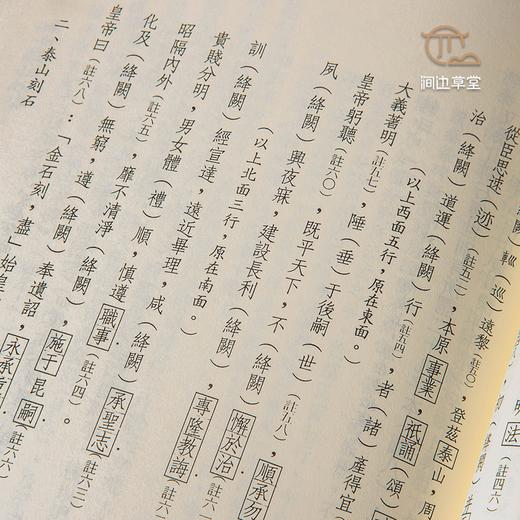 巡）遠黎（註五〇），登茲泰山，周
從臣思速（迹）（註五二），本原事業，祇誦（頌）
治（絳闕）道運（絳闕）行（註五四），者（諸）產得宜
（以上西面五行，原在東面。）
大義著明（註五七），陲（垂）于後嗣（世）（註五八），順承勿
皇帝躬聽（註六〇），既平天下，不（絳闕）懈於治
夙（絳闕）興夜寐，建設長利（絳闕），專隆教誨（註六
（以上北面三行，原在南面。）
訓（絳闕）經宣達，遠近畢理，咸（絳闕）承聖志（註六三）
貴賤分明，男女體（禮）順，慎遵職事（註六四）。
昭隔內外（註六五），靡不清淨（絳闕）施于昆嗣
化及（絳闕）無窮，遵（絳闕）奉遺詔，永承
皇帝曰（註六八）：「金石刻，盡」始皇
二、泰山刻石
澗边草堂